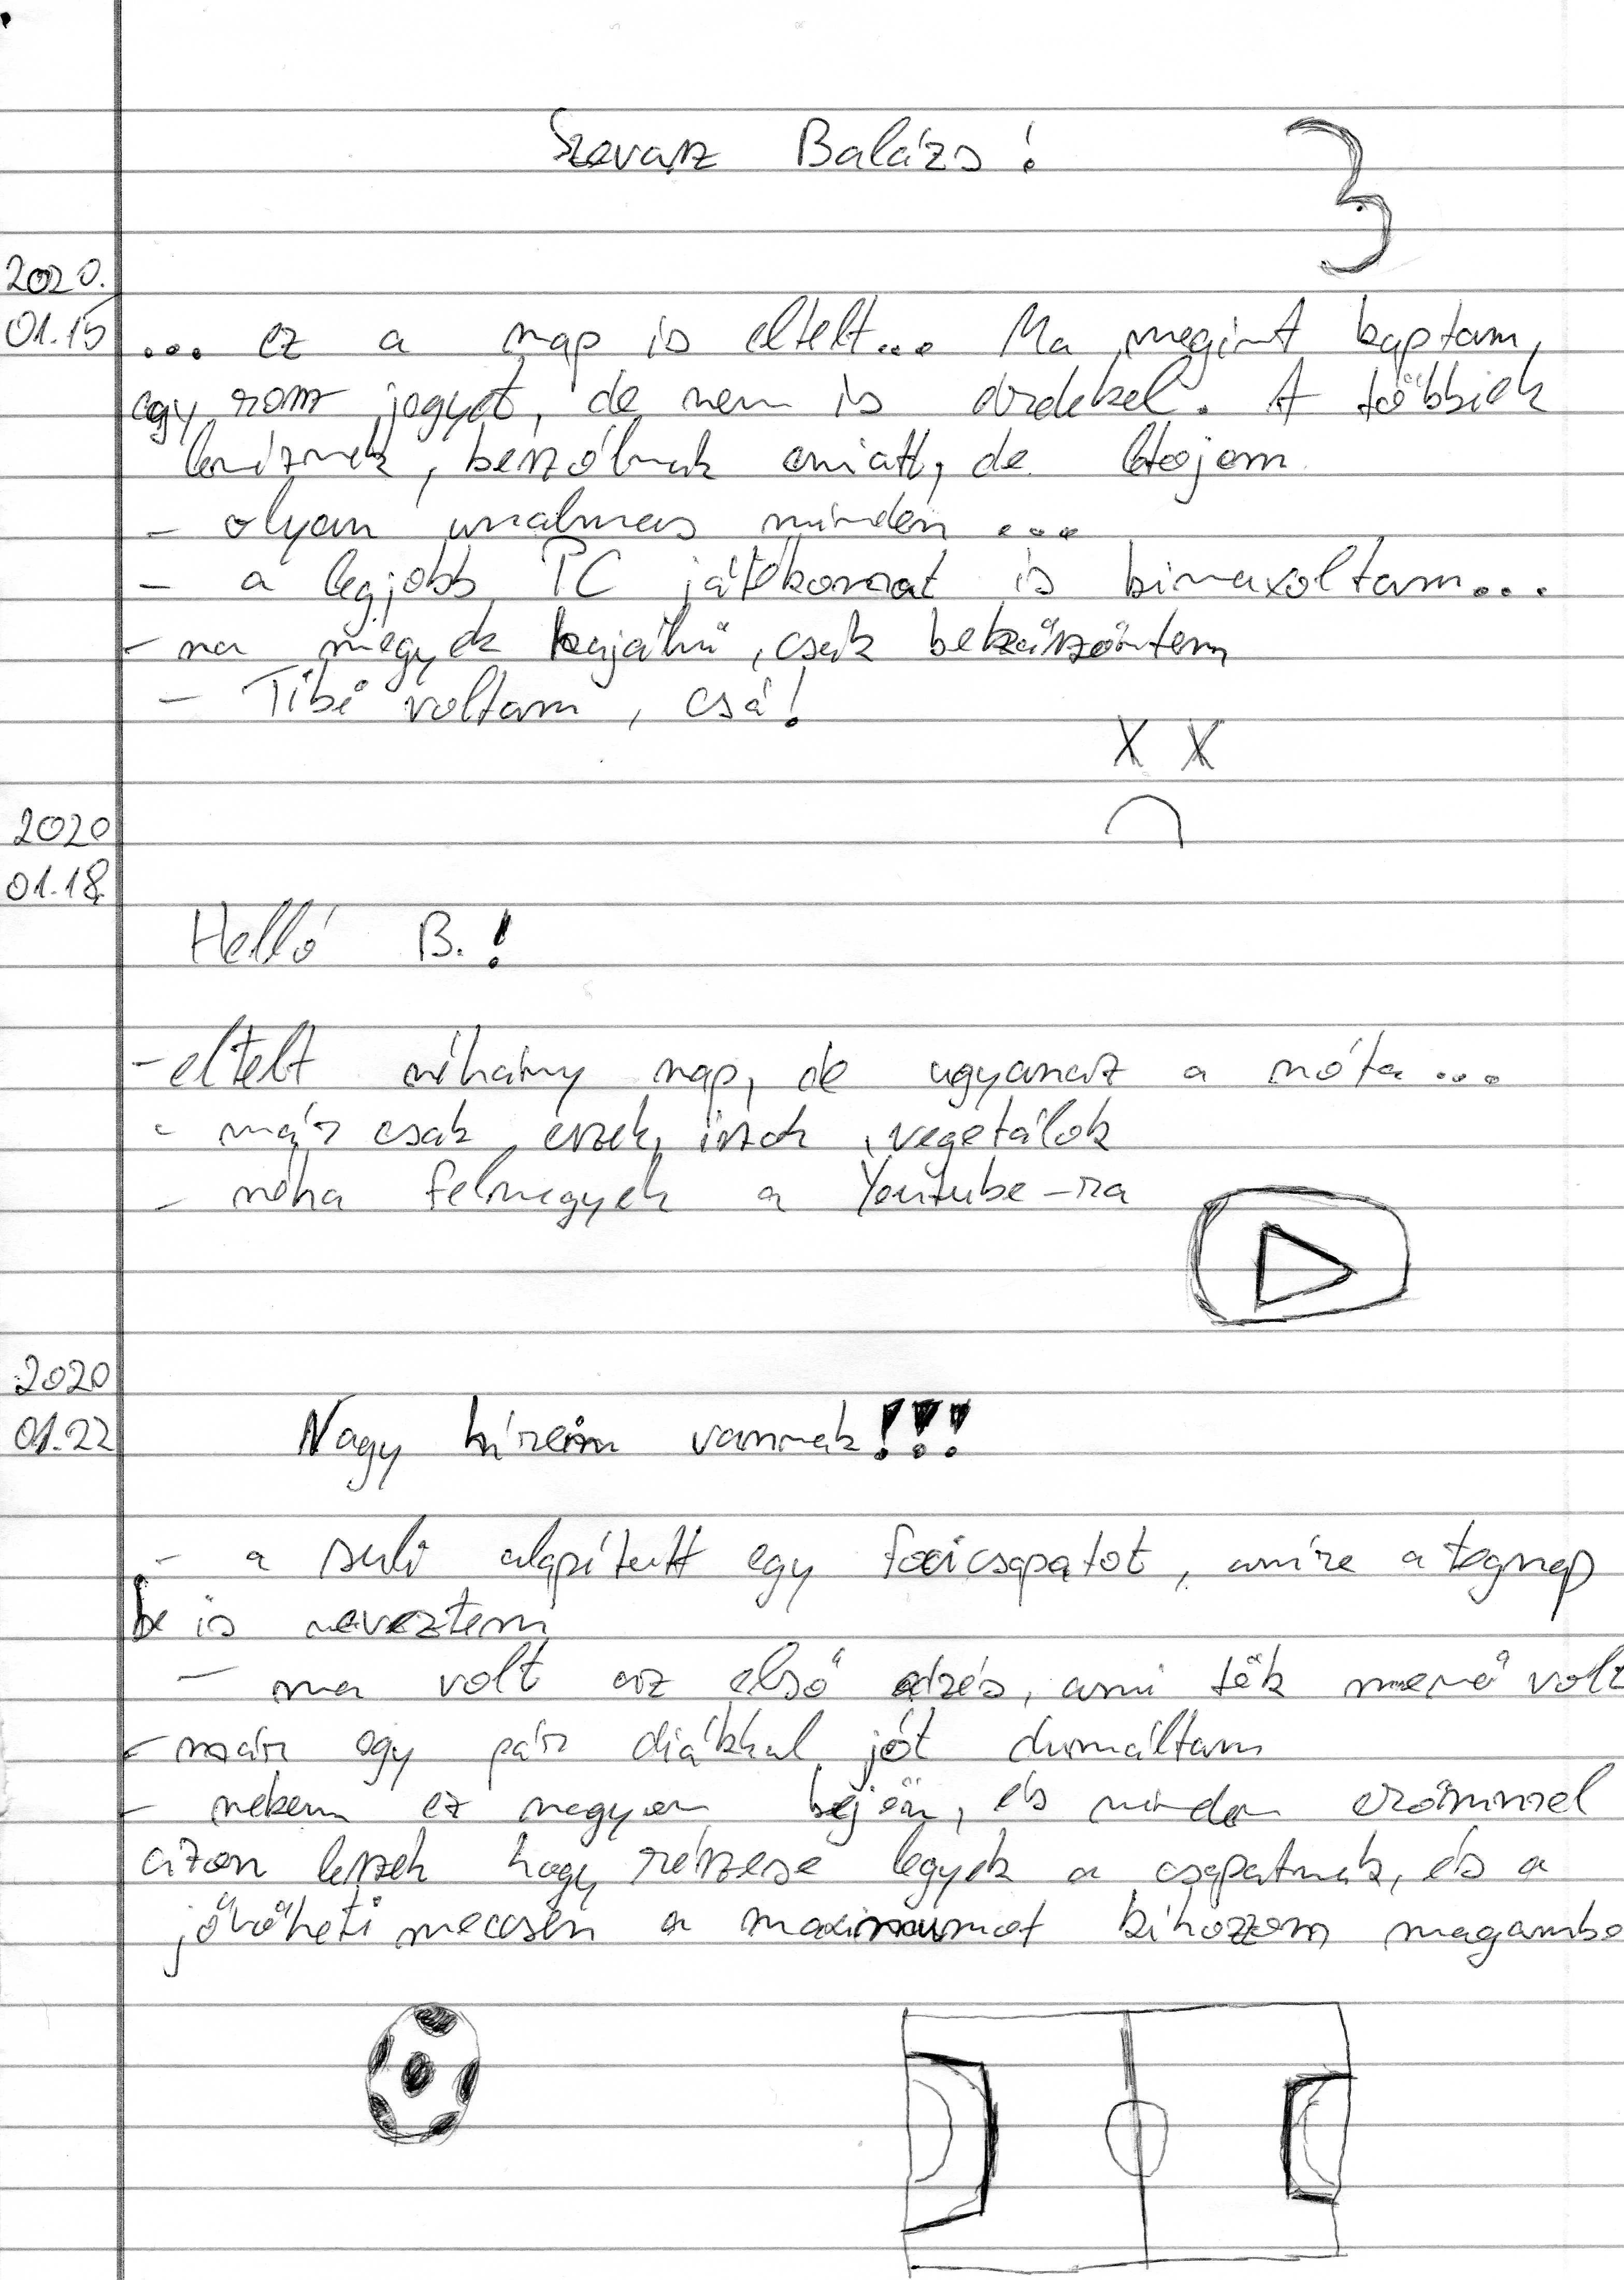 Szevasz Balázs!
3
2020.
01.15
... ez a nap is eltelt... Ma megint kaptam
egy rossz jegyet, de nem is érdekel. A többiek
lenéznek, beszólnak emiatt, de
- olyan unalmas minden ...
- a legjobb PC játékomat is kimaxoltam...
- na megyek kajálni, csak beköszöntem
- Tibi voltam, csá!
X X
2020
01.18.
Helló B.!
- eltelt néhány nap, de ugyanaz a nóta ...
- már csak eszek, iszok, vegetálok
- néha felmegyek a Youtube-ra
2020
01.22
Nagy híreim vannak!!!
- a suli alapított egy focicsapatot, amire a tegnap
be is neveztem
- ma volt az első edzés, ami tök menő volt
- már egy pár diákkal jót dumáltam
- nekem ez nagyon bejön, és minden erőmmel
azon leszek hogy részese legyek a csapatnak, és a
jövőheti meccsen a maximumot kihozzom magambó